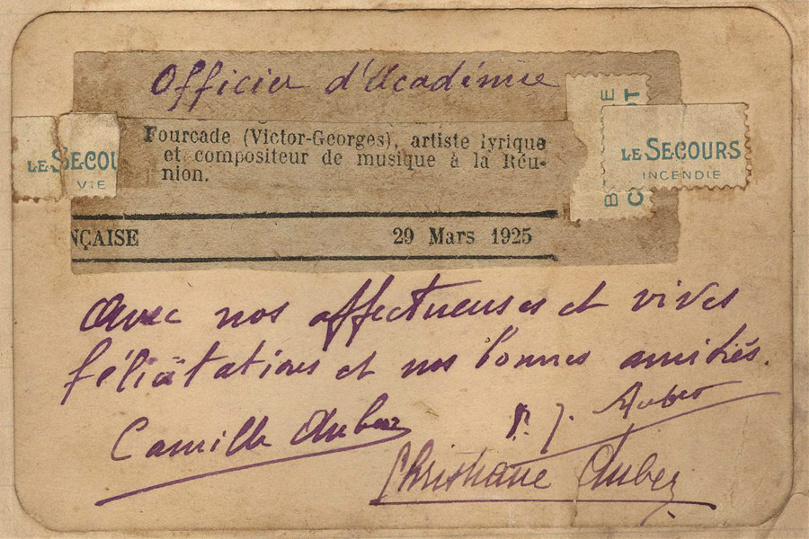 Officier d'Académie
Fourcade (Victor-Georges), artiste lyrique
et compositeur de musique à la Réu-
nion.
NÇAISE 29 Mars 1925
LE SECOU
VIE
LE SECOURS
INCENDIE
Avec nos affectueuses et vives
félicitations et nos bonnes amitiés.
Camille Auber
P. J. Auber
Christiane Auber